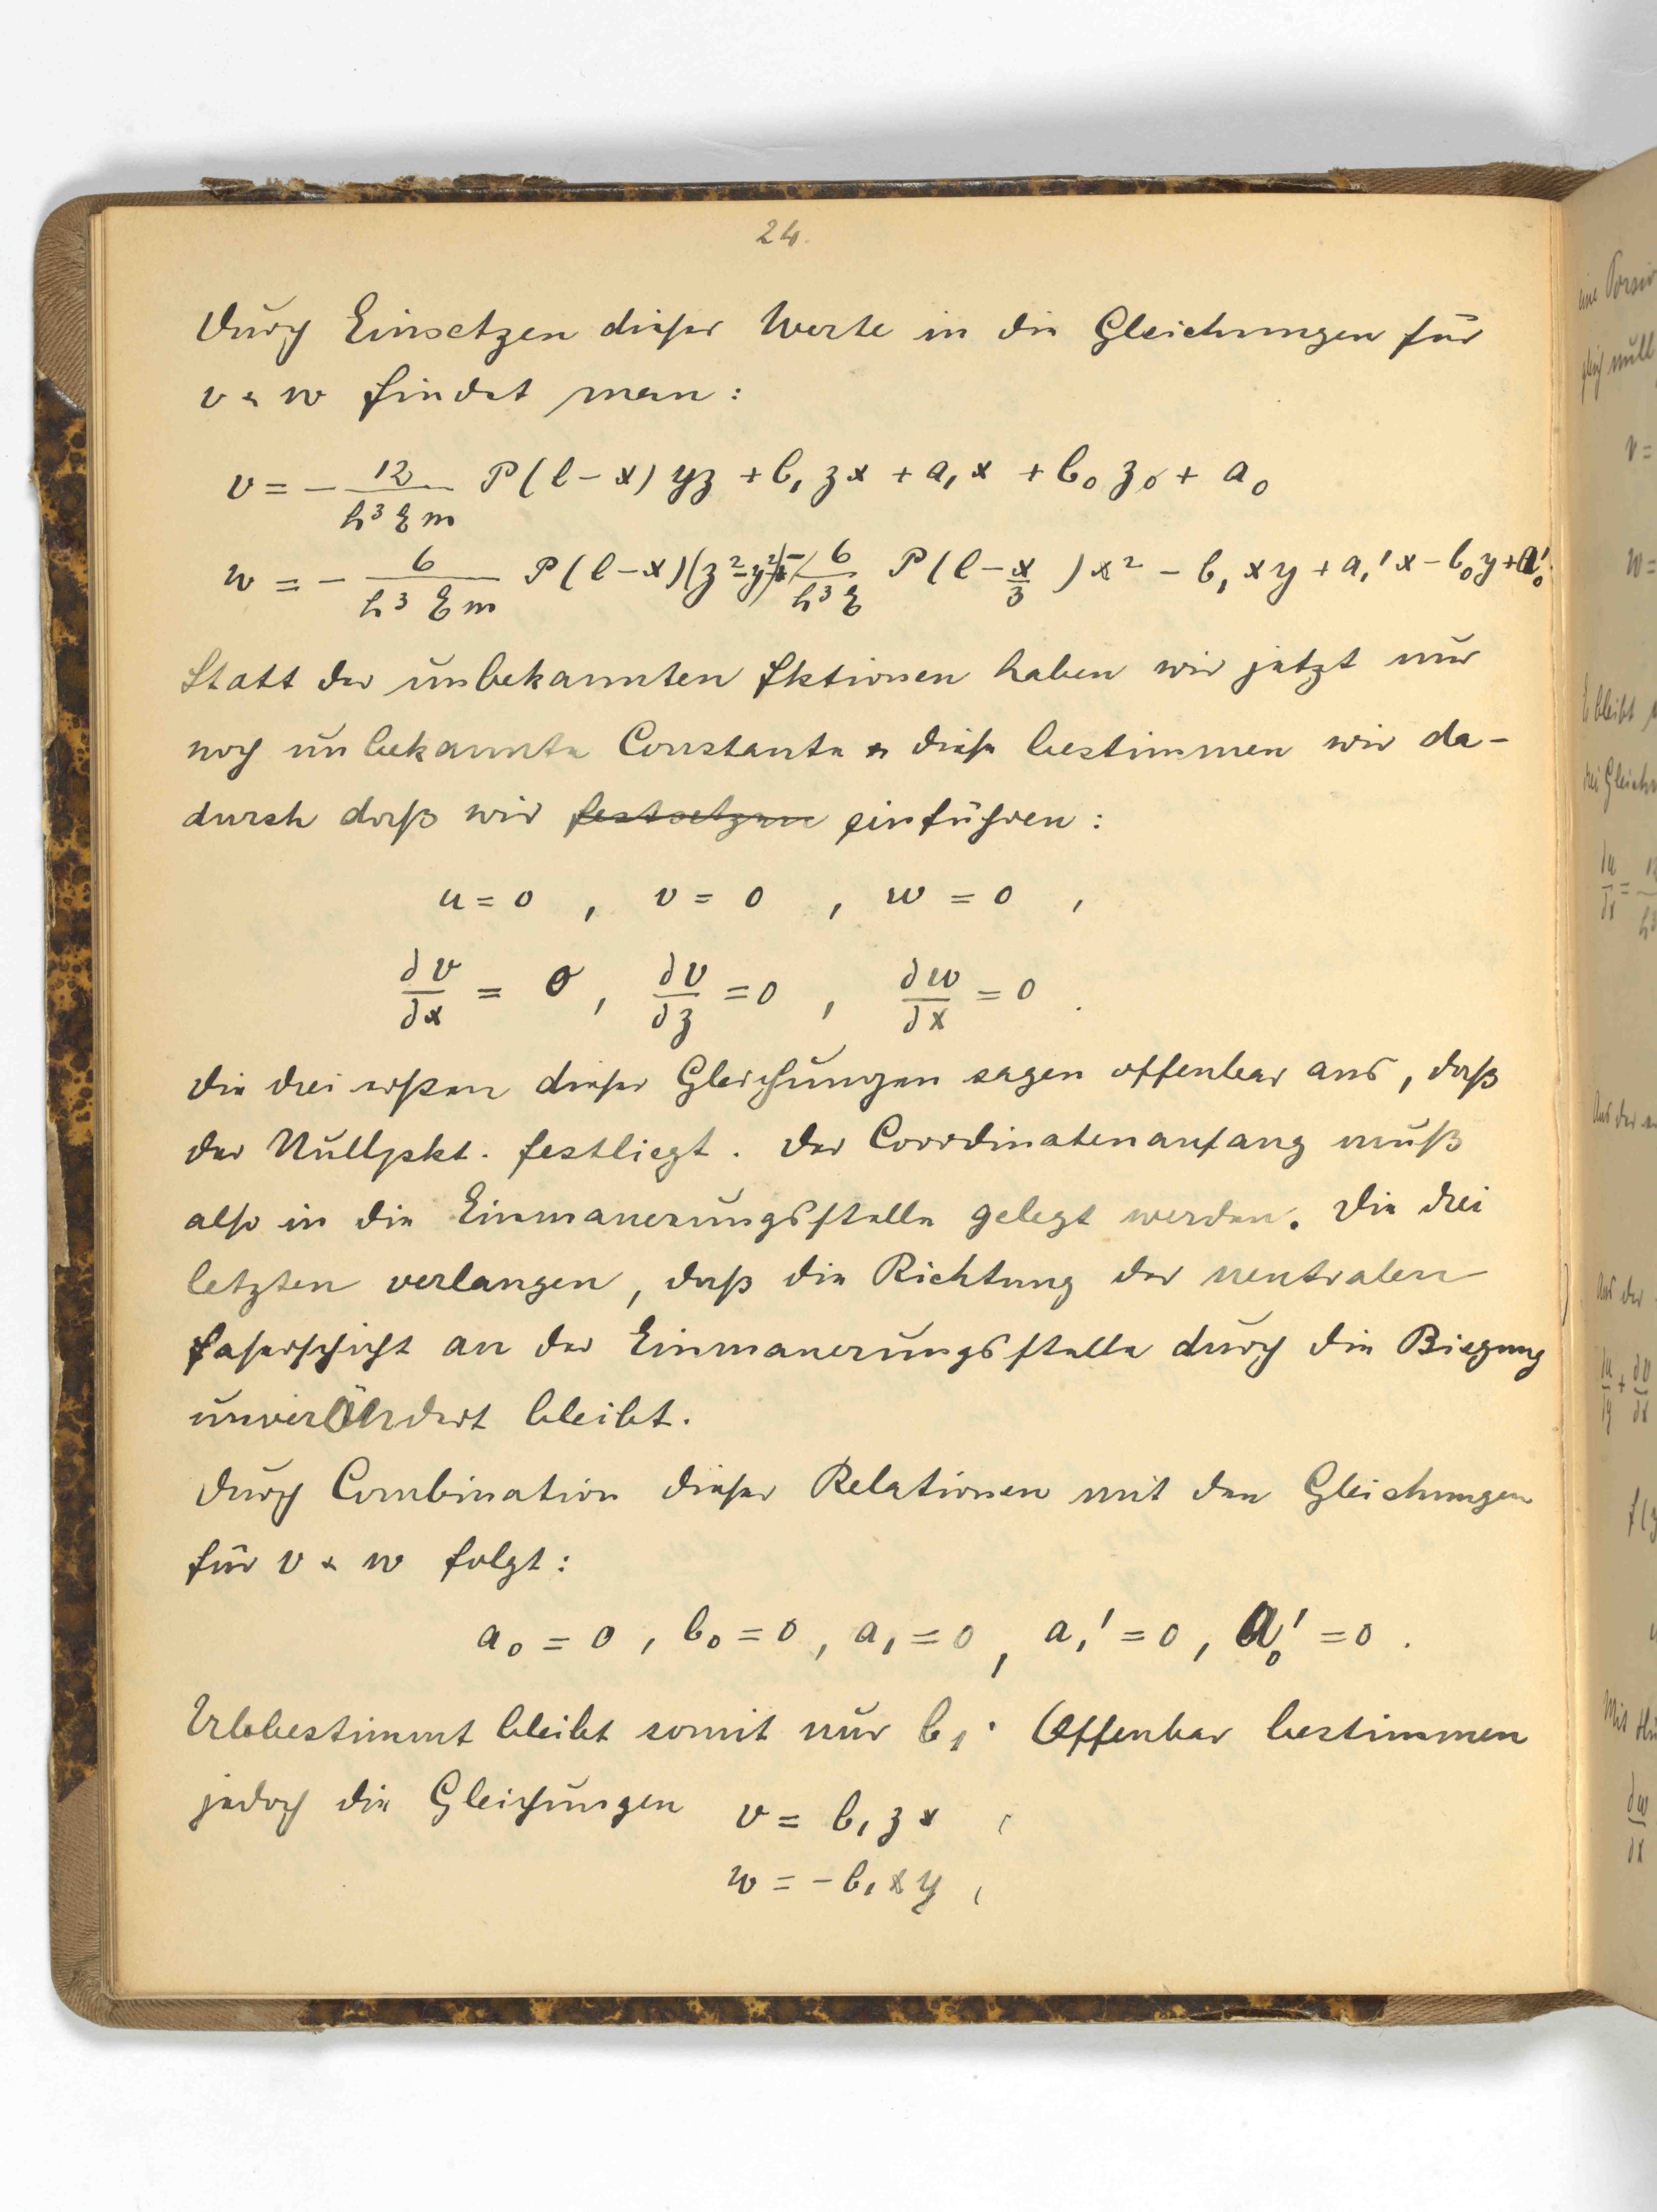 24.
Durch Einsetzen dieser Werte in die Gleichungen für
v & w findet man:
v = - 12/(h³ E m) P(l-x) yz + b₁ zx + a₁ x + b₀ z + a₀
w = - 6/(h³ E m) P(l-x)(z²-y²) - 6/(h³ E) P(l - x/3) x² - b₁ xy + a₁' x - b₀ y + a₀'
Statt der unbekannten Fktionen haben wir jetzt nur
noch unbekannte Constante & diese bestimmen wir da-
durch daß wir festsetzen einführen:
u = 0 , v = 0 , w = 0 ,
∂v/∂x = 0 , ∂v/∂z = 0 , ∂w/∂x = 0 .
Die drei ersten dieser Gleichungen sagen offenbar aus, daß
der Nullpkt. festliegt. Der Coordinatenanfang muß
also in die Einmauerungsstelle gelegt werden. Die drei
letzten verlangen, daß die Richtung der neutralen
Faserschicht an der Einmauerungsstelle durch die Biegung
unverändert bleibt.
Durch Combination dieser Relationen mit den Gleichungen
für v & w folgt:
a₀ = 0 , b₀ = 0 , a₁ = 0 , a₁' = 0 , a₀' = 0 .
Unbestimmt bleibt somit nur b₁. Offenbar bestimmen
jedoch die Gleichungen v = b₁ z x ,
w = - b₁ x y ,
eine
gleich null
v =
w =
Es bleibt
drei
∂u/∂x =
Aus der
Aus der
Mit
∂w/∂x